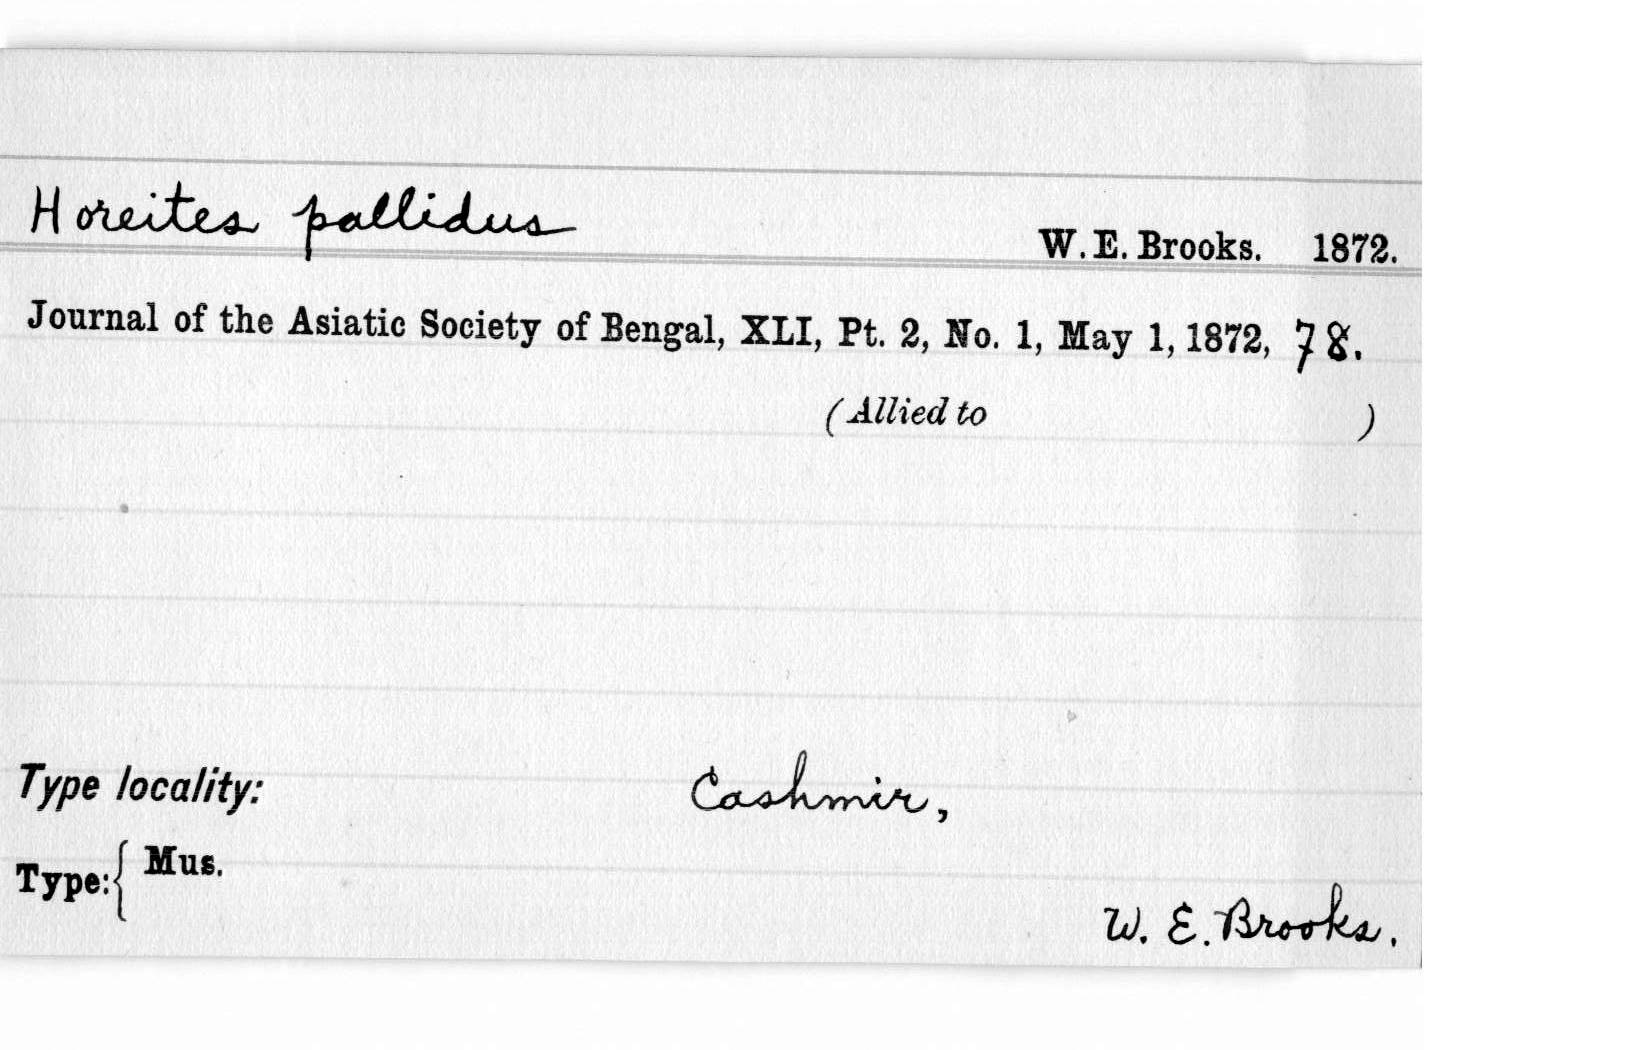 Horeites pallidus
W. E. Brooks. 1872.
Journal of the Asiatic Society of Bengal, XLI, Pt. 2, No. 1, May 1, 1872, 78.
(Allied to )
Type locality: Cashmir,
Type: { Mus.
W. E. Brooks.